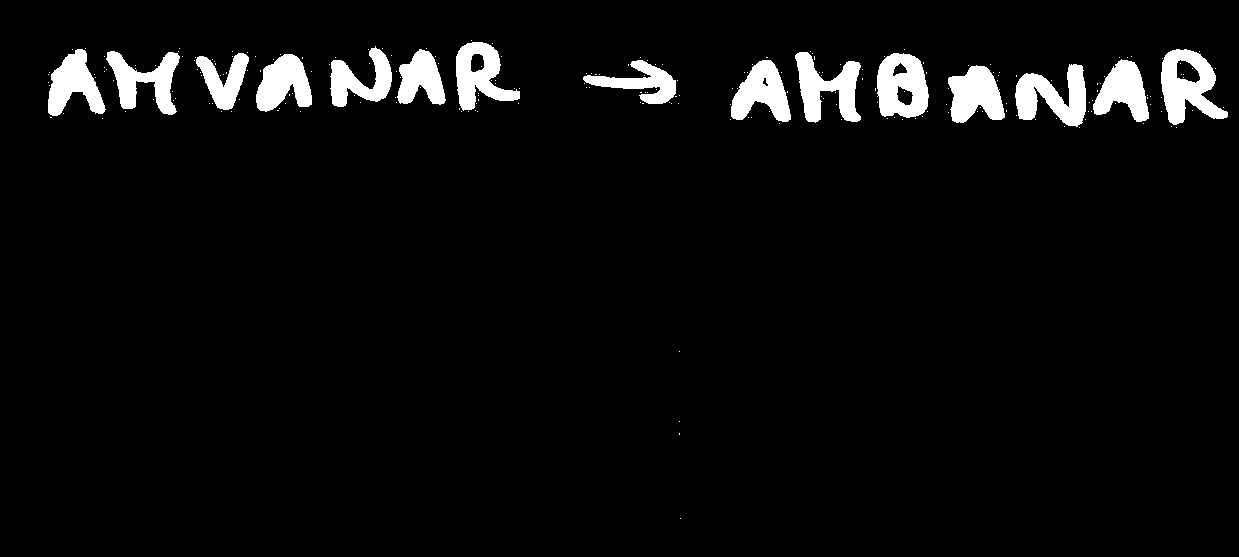 AMVANAR → AMBANAR